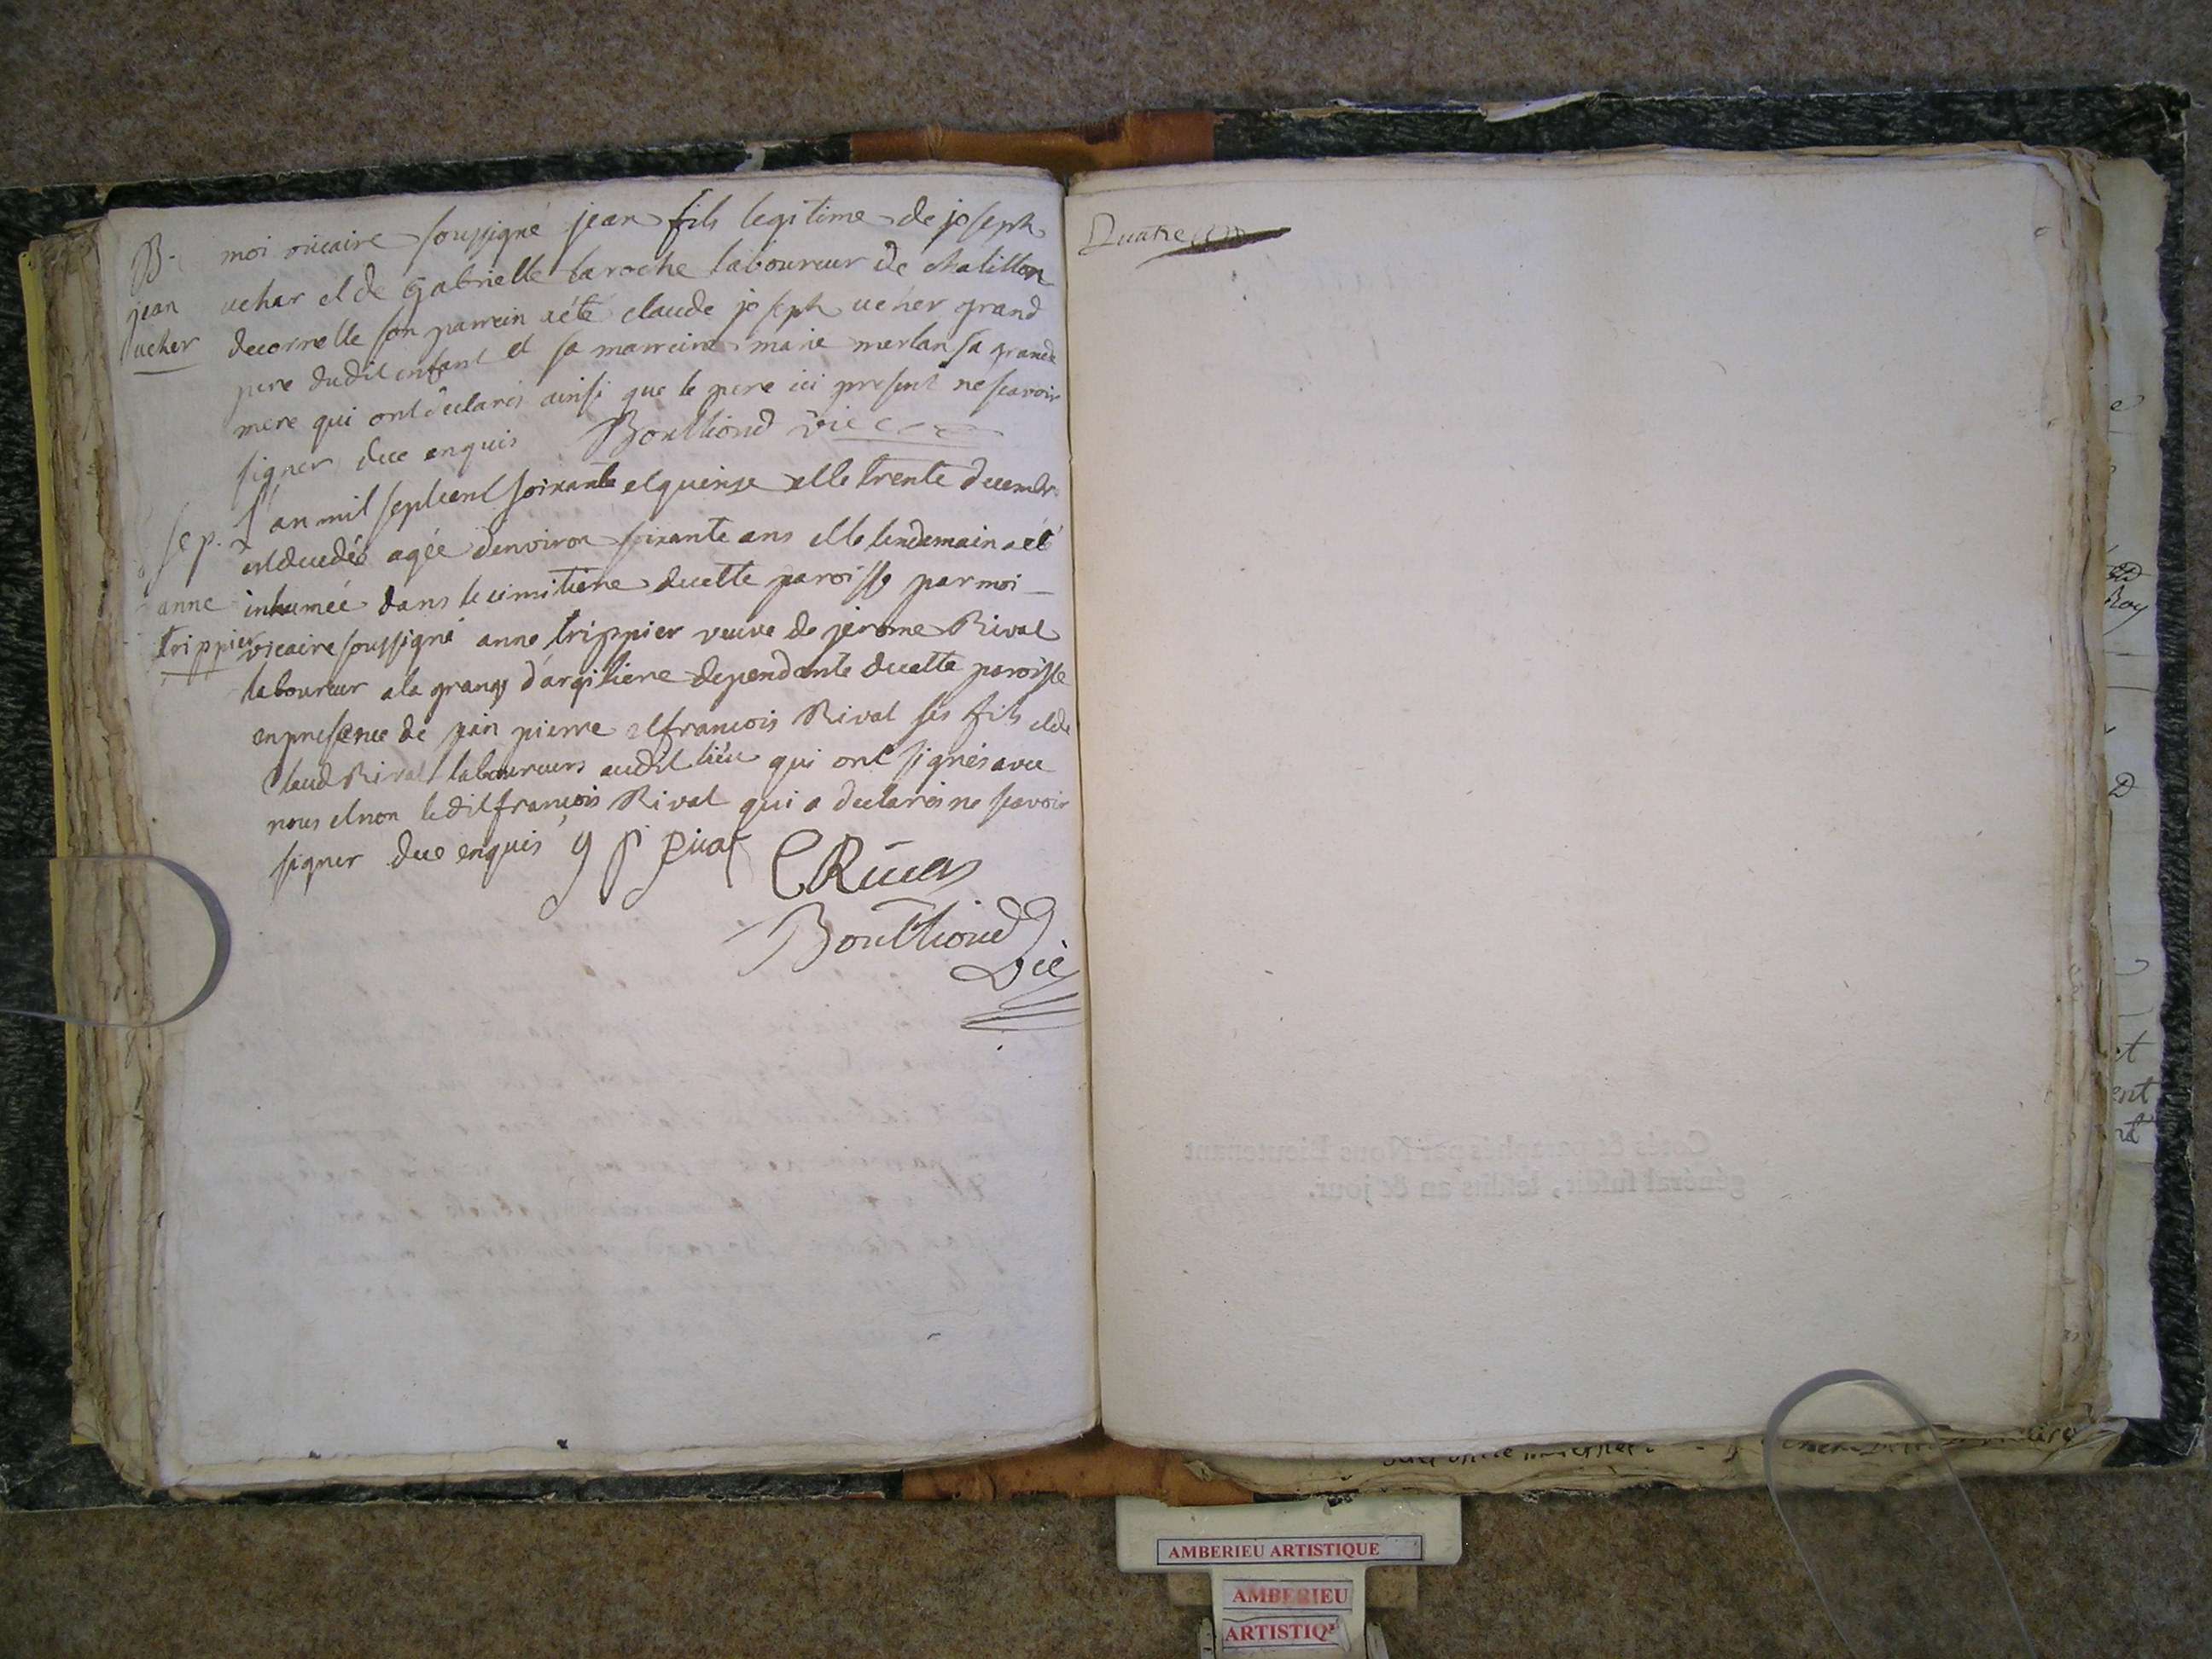 B.
jean
ucher
moi vicaire soussigné jean fils legitime de joseph
uchar et de Gabrielle laroche laboureur de chatillon
decornelle son parrein a été claude joseph ucher grand
pere dudit enfant et sa marreine marie merlan sa grande
mere qui ont declarés ainsi que le pere ici present ne scavoir
signer dece enquis Bouttiond vic
sep.
anne
trippier
L'an mil septcent soixante et quinse et le trente decembre
est decedée agée denviron soixante ans et le lendemain a été
inhumée dans le cimitiere decette paroisse par moi
vicaire soussigné anne trippier veuve de jerome Rival
laboureur a la grange d'argiliere dependante decette paroisse
en presence de jean pierre et francois Rival ses fils et de
Claud Rival laboureurs audit lieu qui ont signés avec
nous et non ledit francois Rival qui a declarés ne scavoir
signer dece enquis
C Rival
Bouttiond
Vic
Quatre
Cotés & paraphés par Nous Lieutenant
général susdit, lesdits an & jour.
AMBERIEU ARTISTIQUE
AMBERIEU
ARTISTIQ